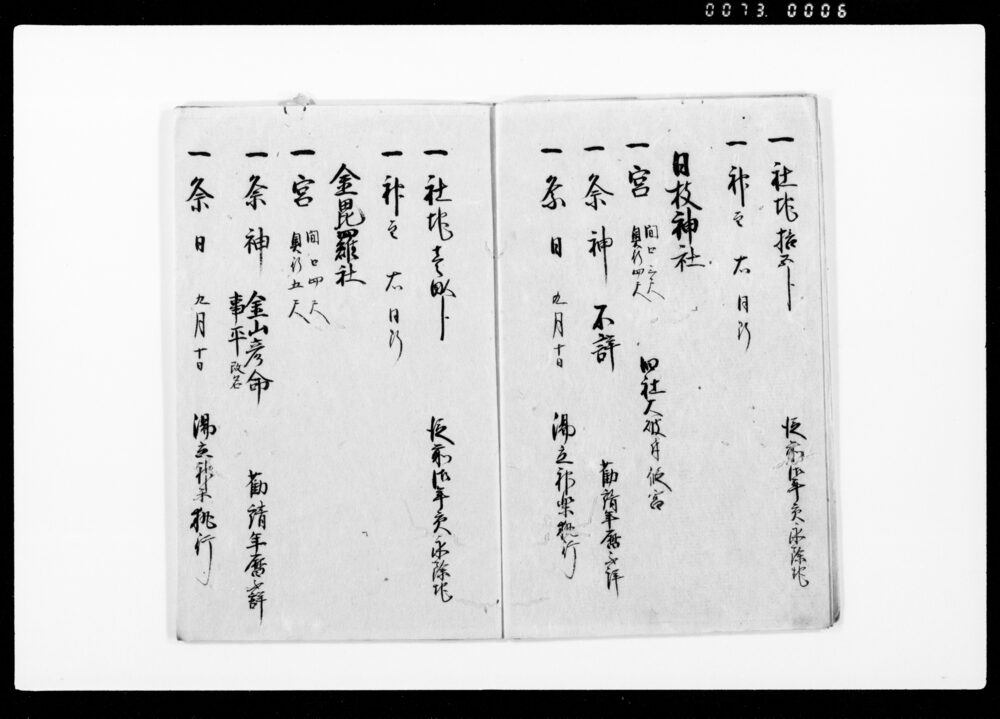 0073 0006
一 社地拾五歩 従前御年貢永除地
一 神主 右同断
日枝神社
一 宮 間口三尺 奥行四尺 旧社大破ニ付仮宮
一 祭神 不詳 勧請年暦不詳
一 祭日 九月十日 湯立神楽執行
一 社地壱畝歩 従前御年貢永除地
一 神主 右同断
金毘羅社
一 宮 間口四尺 奥行五尺
一 祭神 金山彦命 事平改名 勧請年暦不詳
一 祭日 九月十日 湯立神楽執行